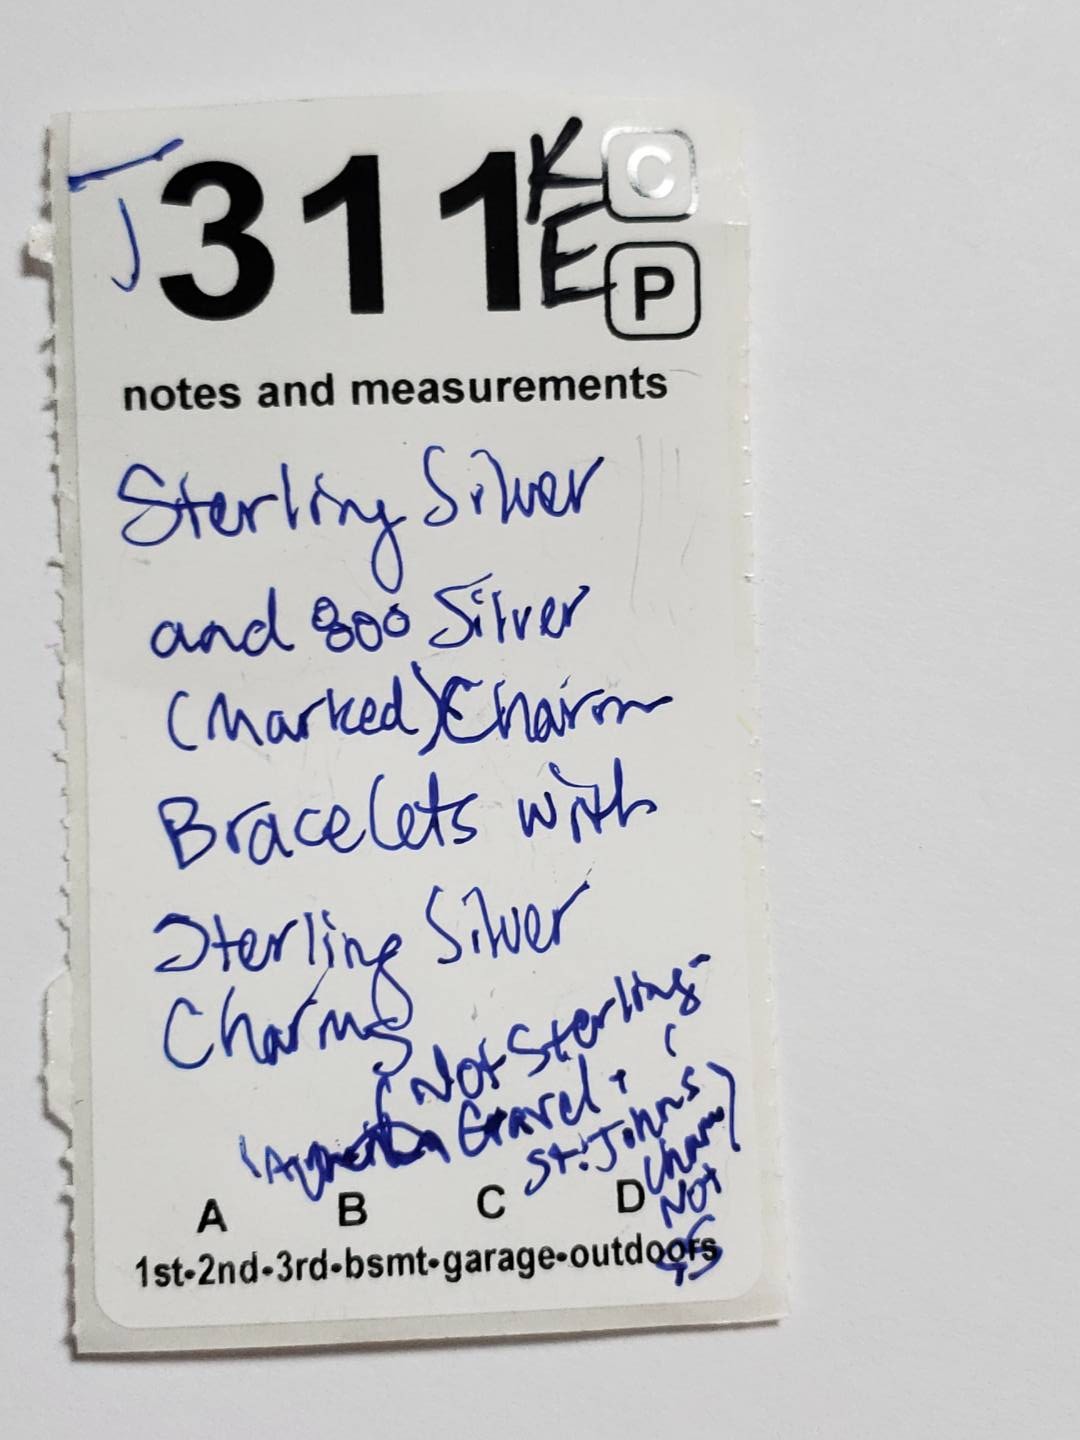 J 311 K C
E P
notes and measurements
Sterling Silver
and 800 Silver
(Marked) Chairm
Bracelets with
Sterling Silver
Charms
(Not Sterling-
Gravel +
St. Johns
Charm)
Not
SS
A B C D
1st-2nd-3rd-bsmt-garage-outdoors